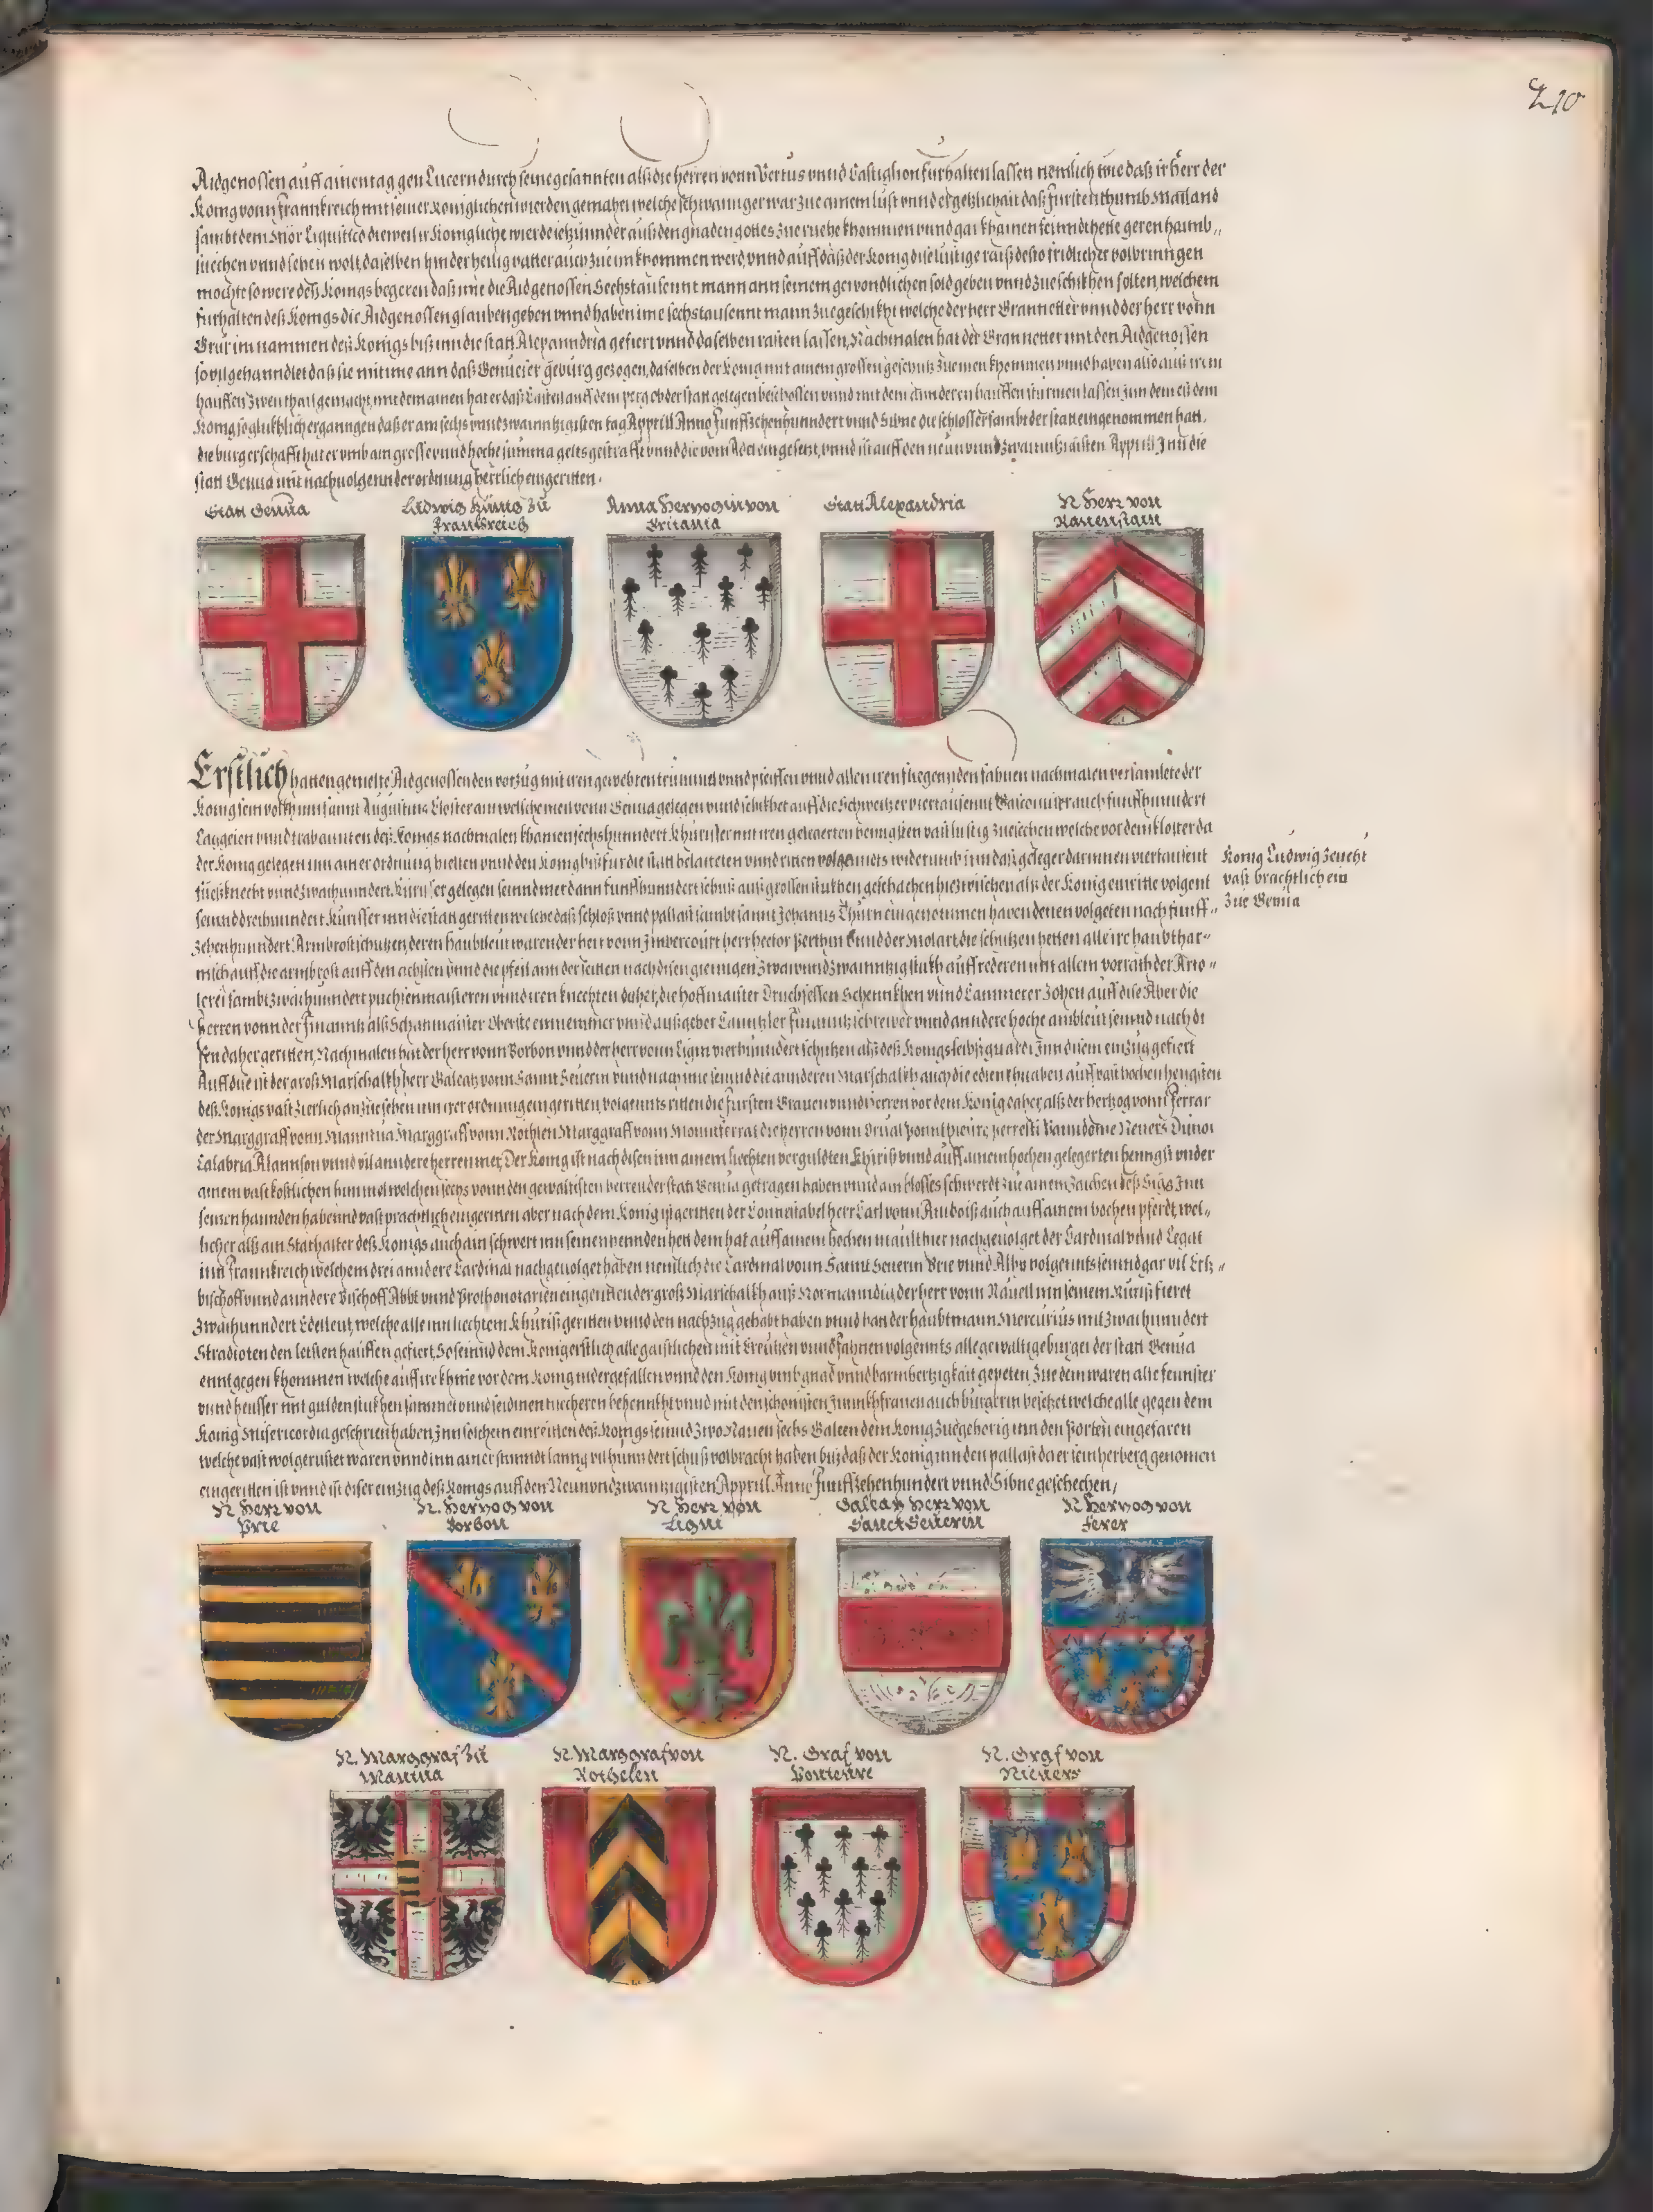 210
Aidgenossen auff ainen tag gen Lucern durch seine gesannten alß die herren vonn Vertus vnnd Castighon furhalten lassen nemlich wie daß ir herr der
Konig vonn Frannkreich mit seiner koniglichen wierden gemahel welche schwannger war zue ainem lust vnnd ergetzlichait daß furstenthumb Mailand
sambt dem Mör Ligustico dieweil ir Konigliche wierde ietzunnder auß den gnaden gottes zue ruehe khommen vnnd gar khainen feinndt hette geren haimb„
suechen vnnd sehen wolt, daselben hin der heilig vatter auch zue im khommen werd, vnnd auff daß der Konig dise lustige raiß desto fridlicher volbringen
mochte so were deß Konigs begeren daß ime die Aidgenossen Sechstausennt mann ann seinem gewondlichen sold geben vnnd zueschikhen solten, welchem
furhalten deß Konigs die Aidgenossen glauben geben vnnd haben ime sechstausennt mann zuegeschikht welche der herr Grannetter vnnd der herr vonn
Grur im nammen deß Konigs biß inn die statt Alexanndria gefiert vnnd daselben rasten lassen, Nachmalen hat der Grannetter mit den Aidgenossen
sovil gehanndlet daß sie mit ime ann daß Genueser geburg gezogen, daselben der konig mit ainem grossen geschutz zue inen khommen vnnd haben also auß irem
hauffen zwen thail gemacht, mit dem ainen hat er daß Castell auff dem perg ob der statt gelegen beschossen vnnd mit dem annderen hauffen sturmen lassen, inn dem es dem
Konig so glukhlich erganngen daß er am sechs vnnd zwainntzigisten tag Apprill Anno Funffzehenhunndert vnnd Sibne die schlosser sambt der statt eingenommen hatt,
die burgerschafft hat er vmb ain grosse vnnd hoche summa gelts gestrafft vnnd die vom Adel eingesetzt, vnnd ist auff den neun vnnd zwainntzigisten Apprill Inn die
statt Genua mit nachuolgennder ordnung herrlich eingeritten.
Statt Genua
Ludwig Künig zu
Frankreich
Anna Hertzogin von
Britania
Statt Alexandria
N Herr von
Rauenstain
Erstlich hatten gemelte Aidgenossen den vorzug mit iren gewehrten trummen vnnd pfeiffen vnnd allen iren fliegennden fahnen nachmalen versamlete der
Konig sein volkh inn sannt Augustins Closter ain welsche meil vonn Genua gelegen vnnd schikhet auff die Schweitzer viertausennt Gasconier auch funffhunndert
Laggeien vnnd trabannten deß Konigs nachmalen khamen sechshunndert khurisser mit iren gelegerten henngsten vast lustig zuesechen welche vor dem kloster da
der Konig gelegen inn ainer ordnung hielten vnnd den Konig biß fur die statt belaiteten vnnd ritten volgennts widerumb inn daß geleger darinnen viertausent
fueßknecht vnnd zwaihunndert Kurisser gelegen seinnd mer dann funffhunndert schuß auß grossen stukhen geschachen hiezwischen alß der Konig einritte volgent
seinnd dreihunndert Kurisser inn die statt geritten welche daß schloß vnnd pallast sambt sannt Johanns Thurn eingenommen haben denen volgeten nach funff„
zehenhunndert Armbrostschutzen deren haubtleut waren der herr vonn Imbercourt herr hector Perthin vnnd der Molart die schutzen hetten alle ire haubthar„
nisch auff, die armbrost auff den achslen vnnd die pfeil ann der seitten nach disen giengen zwai vnnd zwainntzig stukh auff rederen mit allem vorrath der Arto„
lerei sambt zwaihunndert puchsenmaisteren vnnd iren knechten daher, die hoffmaister Druchsessen Schennkhen vnnd Cammerer zohen auff dise Aber die
herren vonn der finanntz alß Schatzmaister Oberste einnemmer vnnd außgeber Canntzler finanntzschreiber vnnd anndere hoche ambleut seinnd nach di
sen daher geritten, Nachmalen hat der herr vonn Borbon vnnd der herr vonn Ligni vierhunndert schutzen alß deß Konigs leibsguardi Inn disem einzug gefiert
Auff dise ist der groß Marschalkh herr Galeatz vonn Sannt Seuerin vnnd nach ime seinnd die annderen Marschalkh auch die edlen khnaben auff vast hochen hengsten
deß Konigs vast zierlich anzusehen inn irer ordnung eingeritten, volgennts ritten die fursten Grauen vnnd Herren vor dem Konig daher, alß der hertzog vonn Ferrar
der Marggraff vonn Manntua Marggraff vonn Rothlen Marggraff vonn Monnterrat die herren vonn Orual Ponntpieure, Vanndome Neuers Dunoi
Calabria Alannson vnnd vil anndere herren mer, Der Konig ist nach disen inn ainem liechten verguldten Khiriß vnnd auff ainem hochen gelegerten henngst vnder
ainem vast kostlichen himmel welchen sechs vonn den gewaltisten herren der statt Genua getragen haben vnnd ain blosses schwerdt zue ainem zaichen deß Sigs Inn
seinen hannden habennd vast prachtlich eingeritten aber nach dem Konig ist geritten der Connestabel herr Carl vonn Amboiß auch auff ainem hochen pferdt, wel„
licher alß ain Stathalter deß Konigs auch ain schwert inn seinen hennden hett dem hat auff ainem hochen maulthier nachgeuolget der Cardinal vnnd Legat
inn Frannkreich welchem drei anndere Cardinal nachgeuolget haben nemlich die Cardinal vonn Sannt Seuerin Brie vnnd Albo volgennts seinnd gar vil Ertz„
bischoff vnnd anndere Bischoff Äbbt vnnd Prothonotarien eingeritten der groß Marschalkh auß Normanndia, der herr vonn Rauell inn seinem Kuriß fieret
zwaihunndert Edelleut, welche alle inn liechtem Khuriß geritten vnnd den nachzug gehabt haben vnnd hat der haubtmann Mercurius mit zwaihunndert
Stradioten den letsten hauffen gefiert, So seinnd dem Konig erstlich alle gaistlichen mit Creutzen vnnd fahnen volgennts alle gewaltige burger der statt Genua
enntgegen khommen welche auff ire khnie vor dem Konig nidergefallen vnnd den Konig vmb gnad vnnd barmhertzigkait gepeten, Zue dem waren alle fennster
vnnd heusser mit gulden stukhen sammet vnnd seidinen tuecheren behennkht vnnd mit den schonisten Junnkhfrauen auch burgerin besetzet welche alle gegen dem
Konig Misericordia geschrien haben, Inn solchem einreitten deß Konigs seinnd zwo Nauen sechs Galeen dem Konig zuegehorig inn den Porten eingefaren
welche vast wolgerustet waren vnnd inn ainer stunndt lanng vil hunndert schuß volbracht haben biß daß der Konig inn den pallast da er sein herberg genomen
eingeritten ist vnnd ist diser einzug deß Konigs auff den Neun vnd zwainzigisten Apprill Anno Funffzehenhundert vnnd Sibne geschechen,
Konig Ludwig zeucht
vast brachtlich ein
zue Genua
N Herr von
Prie
N. Hertzog von
Borbon
N Herr von
Ligni
Galeatz Herr von
Sanct Seuerin
N Hertzog von
Ferer
N. Marggraf zu
Mantua
N. Marggraf von
Rothelen
N. Graf von
Ponteure
N. Graf von
Nieuers